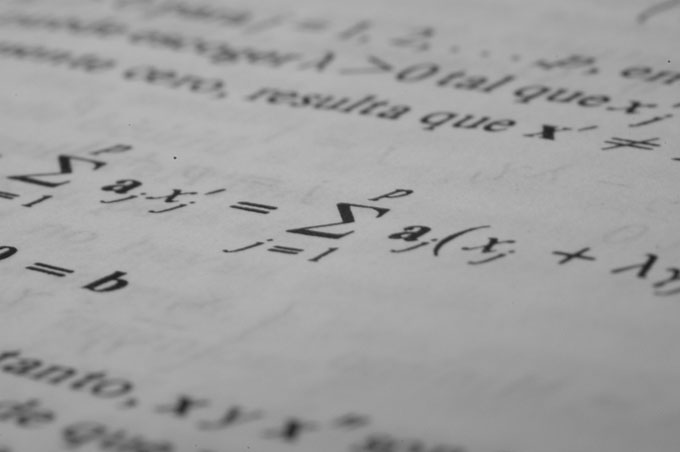 para j = 1, 2, . . . p, en
escoger λ > 0 tal que x_j'
cero, resulta que x' ≠
∑_{j=1}^{p} a_j x_j' = ∑_{j=1}^{p} a_j (x_j + λy
= b
tanto, x y x''
de que